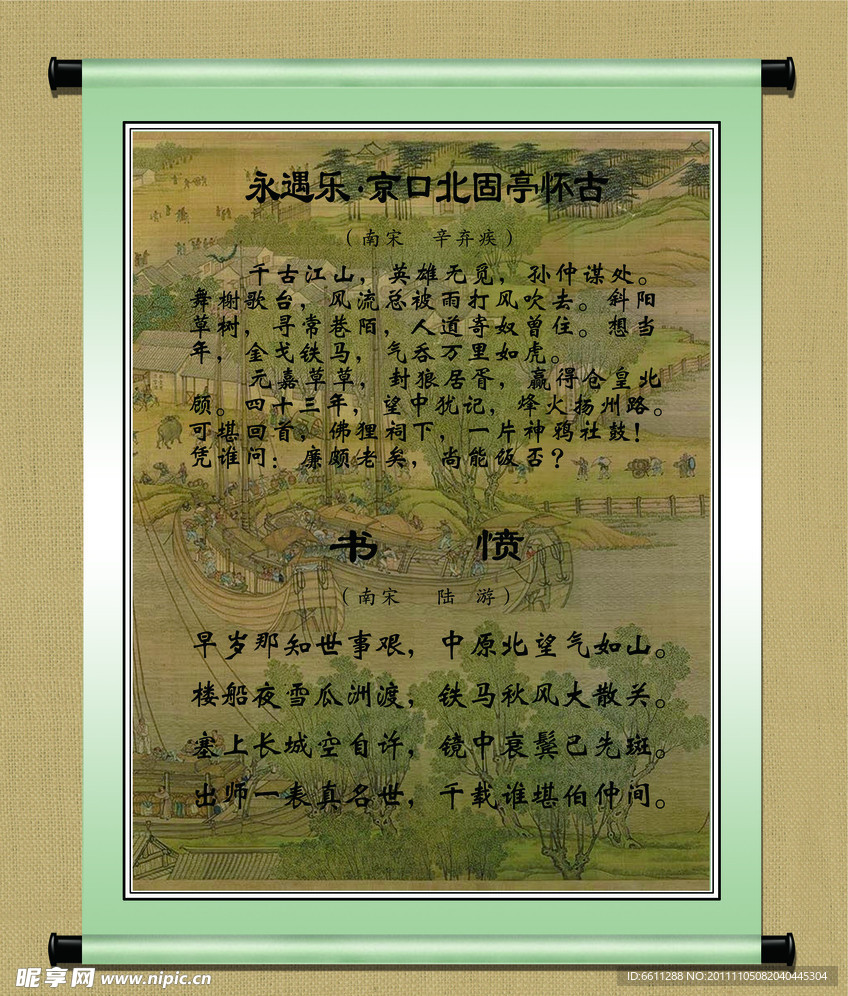 永遇乐·京口北固亭怀古
（南宋 辛弃疾）
千古江山，英雄无觅，孙仲谋处。
舞榭歌台，风流总被雨打风吹去。斜阳
草树，寻常巷陌，人道寄奴曾住。想当
年，金戈铁马，气吞万里如虎。
元嘉草草，封狼居胥，赢得仓皇北
顾。四十三年，望中犹记，烽火扬州路。
可堪回首，佛狸祠下，一片神鸦社鼓！
凭谁问：廉颇老矣，尚能饭否？
书 愤
（南宋 陆 游）
早岁那知世事艰，中原北望气如山。
楼船夜雪瓜洲渡，铁马秋风大散关。
塞上长城空自许，镜中衰鬓已先斑。
出师一表真名世，千载谁堪伯仲间。
昵享网 www.nipic.cn
ID:6611288 NO:20111105082040445304